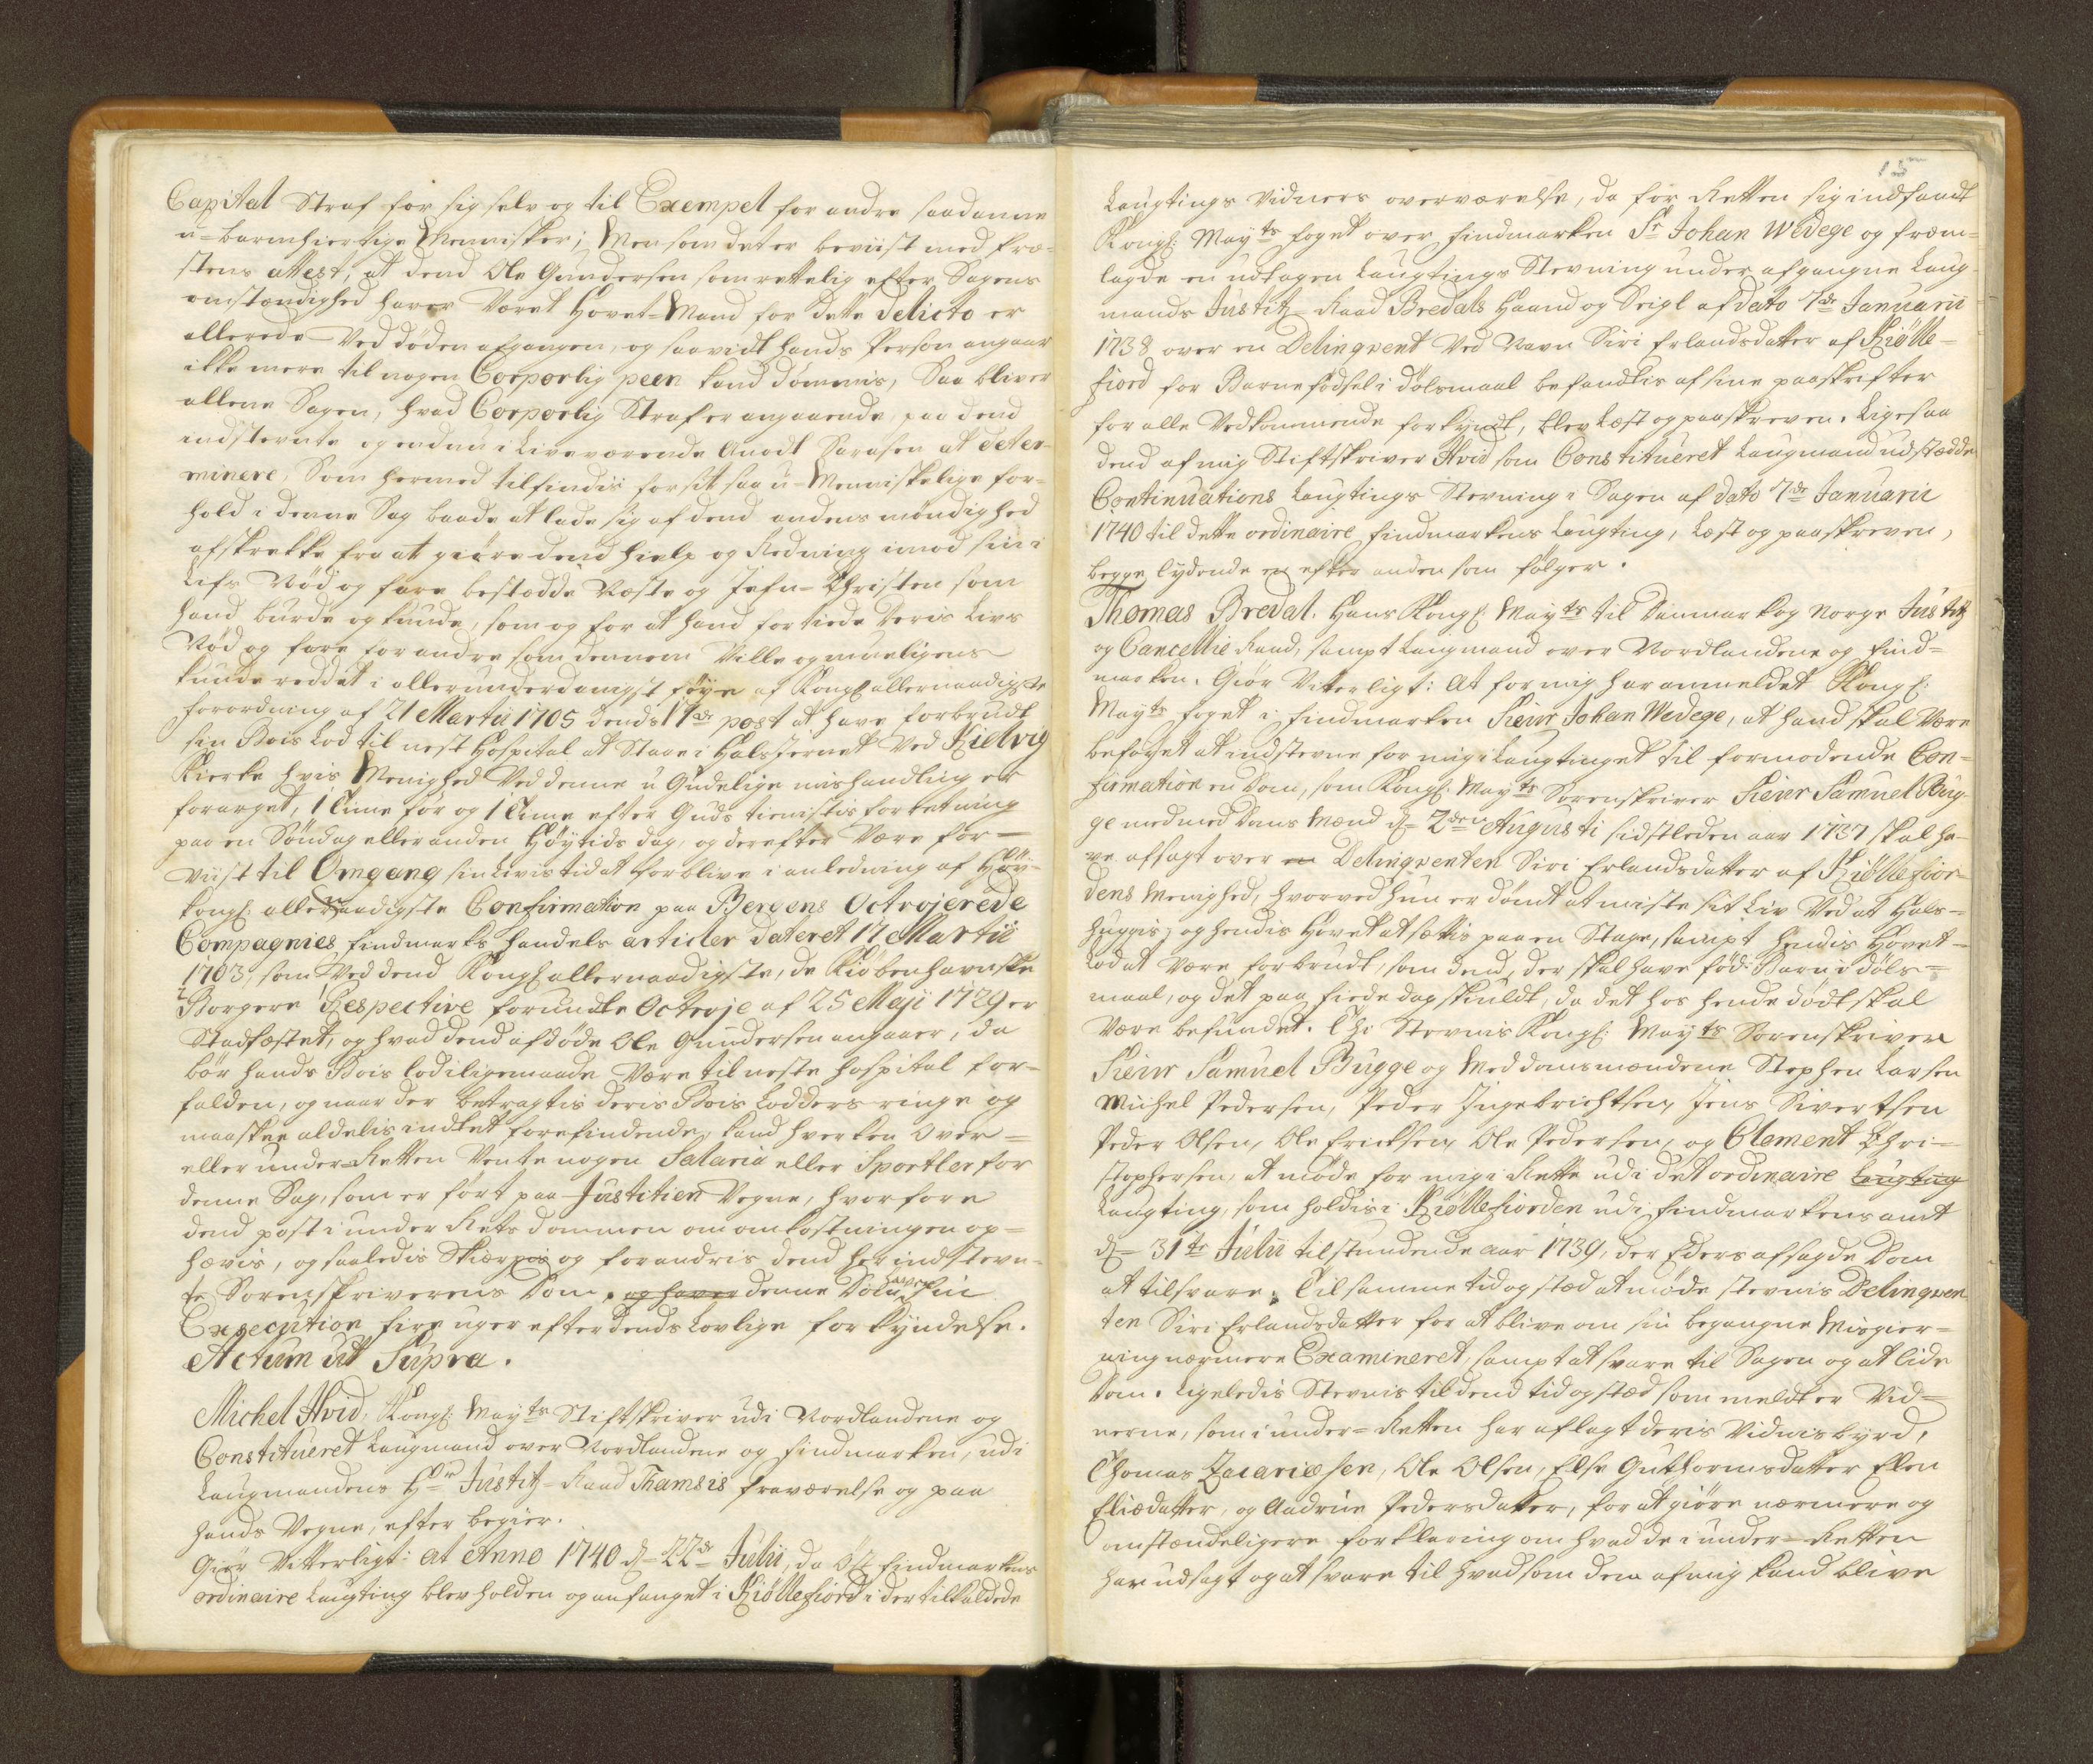 Capital Straf for sig selv og til Exempel for andre saadanne
u-barmhiertige Mennisker; Men som det er beviist med Præ-
stens attest, at dend Ole Gundersen som rettelig efter Sagens
omstændighed haver Været Hovet-Mand for dette Delicto er
allerede Ved døden afgangen, og saavidt hands Person angaar
ikke mere til nogen Corporlig peen kand dømmis, Saa bliver
allene Sagen, hvad Corporlig Straf er angaaende, paa dend
indstevnte og endnu i Live værende Anodt Sarasen at deter-
minere, Som hermed tilfindis for sit saa u-Menniskelige for-
hold i denne Sag baade at lade sig af dend andens møndighed
afskrekke fra at giøre dend hielp og Redning imod sin i
Lifs Nød og fare bestædde Næste og Jefn-Christen som
hand burde og kunde, som og for at hand fortiede deris Livs
Nød og fare for andre som dennem Ville og mueligens
kunde reddet i allerunderdanigst føye af Kongl: allernaadigste
forordning af 21 Martii 1705 dends 17de post at have forbrudt
sin Boes Lod til nest Hospital at Staae i Halsjernet Ved Kielvig
Kierke hvis Menighed Ved denne u Gudelige mishandling er
forarget, 1 Time før og 1 Time efter Guds tienistis forretning
paa en Søndag eller anden Høytids dag, og derefter Være for-
viist til Omgang sin Livis tid at forblive i anledning af Høy-
kongl: allernaadigste Confirmation paa Bergens Octrojerede
Compagnies findmarks handels articler dateret 17 Martii
1703, som Ved dend Kongl: allernaadigste, de Kiøbenhavnske
Borgere Respective forundte Octroje af 25 Maji 1729 er
Stadfæstet, og hvad dend afdøde Ole Gundersen angaaer, da
bør hands Boes lod i ligemaade Være til neste hospital for-
falden, og naar der betragtis deris Boes Lodders ringe og
maaskee aldelis indtet forefindende, kand hverken over-
eller under-Retten Vente nogen Salaria eller Sportler for
denne Sag, som er ført paa Justitien Vegne, hvorfore
dend post i under Rets dommen om omkostningen op-
hævis, og saaledis Skiærpis og forandris dend her indstevn-
te Sorenskriverens Dom. og haver denne Dom haver sin
Execution fire uger efter dends Lovlige forkyndelse.
Actum ut Supra.
Michel Hvid, Kongl: Mayts Stiftskriver udi Nordlandene og
Constitueret Laugmand over Nordlandene og findmarken, udi
Laugmandens Hr Justitz-Raad Thamsis fraværelse og paa
hands Vegne, efter begier.
Giør Vitterligt: at Anno 1740 d= 22de Julii, da Øst findmarkens
ordinaire Laugting blev holden og anfanget i Kiøllefiord i der tilkaldede
15
Laugtings Vidners overværelse, da for Retten sig indfandt
Kongl: Mayts foget over findmarken Sr Johan Wedege og frem-
lagde en udtagen Laugtings Stevning under afgangne Laug-
mands Justitz-Raad Bredals Haand og Seigl af dato 7de Januarii
1738 over en Delinqvent Ved Navn Siri Erlandsdatter af Kiølle-
fiord for Barnefødsel i dølsmaal befandtis af sine paaskrifter
for alle Vedkommende forkyndt, blev Læst og paaskreven. Ligesaa
dend af mig Stiftskriver Hvid som Constitueret Laugmand udstædde
Continuations Laugtings Stevning i Sagen af dato 7de Januarii
1740 til dette ordinaire findmarkens Laugting, Læst og paaskreven,
begge lydende en efter anden som følger.
Thomas Bredal. Hans Kongl: Mayts til Danmark og Norge Justitz
og Cancellie Raad, sampt Laugmand over Nordlandene og find-
marken. Giør Viterligt: At for mig har anmeldet Kongl:
Mayts foget i findmarken Sieur Johan Wedege, at hand skal Være
beføyet at indstevne for mig i Laugtinget til formodende Con-
firmation en Dom, som Kongl: Mayts Sorenskriver Sieur Samuel Bug-
ge med meddoms Mænd d= 2den Augusti sidstleden aar 1737 skal ha-
ve afsagt over en Delinqventen Siri Erlandsdatter af Kiøllefior-
dens Menighed, hvorved hun er dømt at miste sit Liv Ved at Hals-
huggis, og hendis Hovet at settis paa en Stage, sampt hendis Hovet-
Lod at Være forbrudt, som dend, der skal have fød Barn i døls-
maal, og det paa fierde dag skiuldt, da det hos hende dødt skal
Være befundet. Thi Stevnis Kongl: Mayts Sorenskriver
Sieur Samuel Bugge og Meddomsmændene Stephen Larsen
Michel Pedersen, Peder Ingebrichtsen, Jens Sivertsen
Peder Olsen, Ole Ericksen, Ole Pedersen, og Clement Chri-
stophersen, at møde for mig i Rette udi det ordinaire Laugting
Laugting, som holdis i Kiøllefiorden udi findmarkens amt
d= 31te Julii tilstundende aar 1739, der Eders afsagde Dom
at tilsvare; Til samme tid og stæd at møde stevnis Delinqven-
ten Siri Erlandsdatter for at blive om sin begangne Misgier-
ning nærmere Examineret, sampt at svare til Sagen og at lide
Dom. Ligeledis Stevnis til dend tid og stæd som meldt er Vid-
nerne, som i under-Retten har aflagt deris Vidnisbyrd,
Thomas Zacariæsen, Ole Olsen, Else Guthormsdatter Elen
Eliædatter, og Aadrüe Pedersdatter, for at giøre nærmere og
omstændeligere forklaring om hvad de i under-Retten
har udsagt og at svare til hvad som dem af mig kand blive